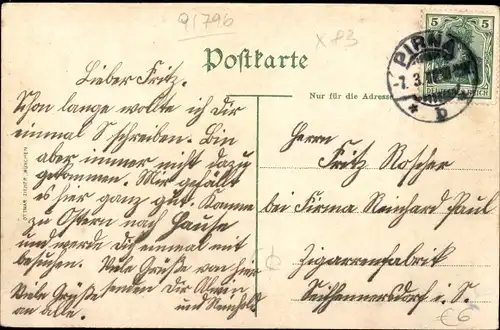 91796
X 83
Postkarte
5 5
PIRNA
-7.3.
* b *
REICH
Nur für die Adresse
Lieber Fritz.
Schon lange wollte ich Dir
einmal schreiben. Bin
aber immer nicht dazu
gekommen. Mir gefällt
es hier ganz gut. Komme
zu Ostern nach Hause
und werde dich einmal mit
besuchen. Viele Grüße von hier
Viele Grüße senden dir Alwin
an alle. und Reinhold
Herrn
Fritz Roscher
bei Firma Reinhard Paul
Zigarrenfabrik
Seifhennersdorf i. S.
OTTMAR ZIEHER, MÜNCHEN
€6